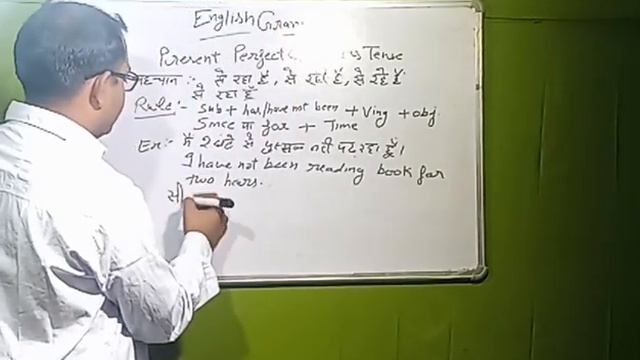 English Gram
Present Perfect Tense
पहचान :- से रहा है, से रही है, से रहे हैं
से रहा हूँ
Rule :- Sub + has/have not been + Ving + obj
Since या for + Time
Ex:- मैं 2 घंटे से पुस्तक नहीं पढ़ रहा हूँ।
I have not been reading book for
two hours.
सी